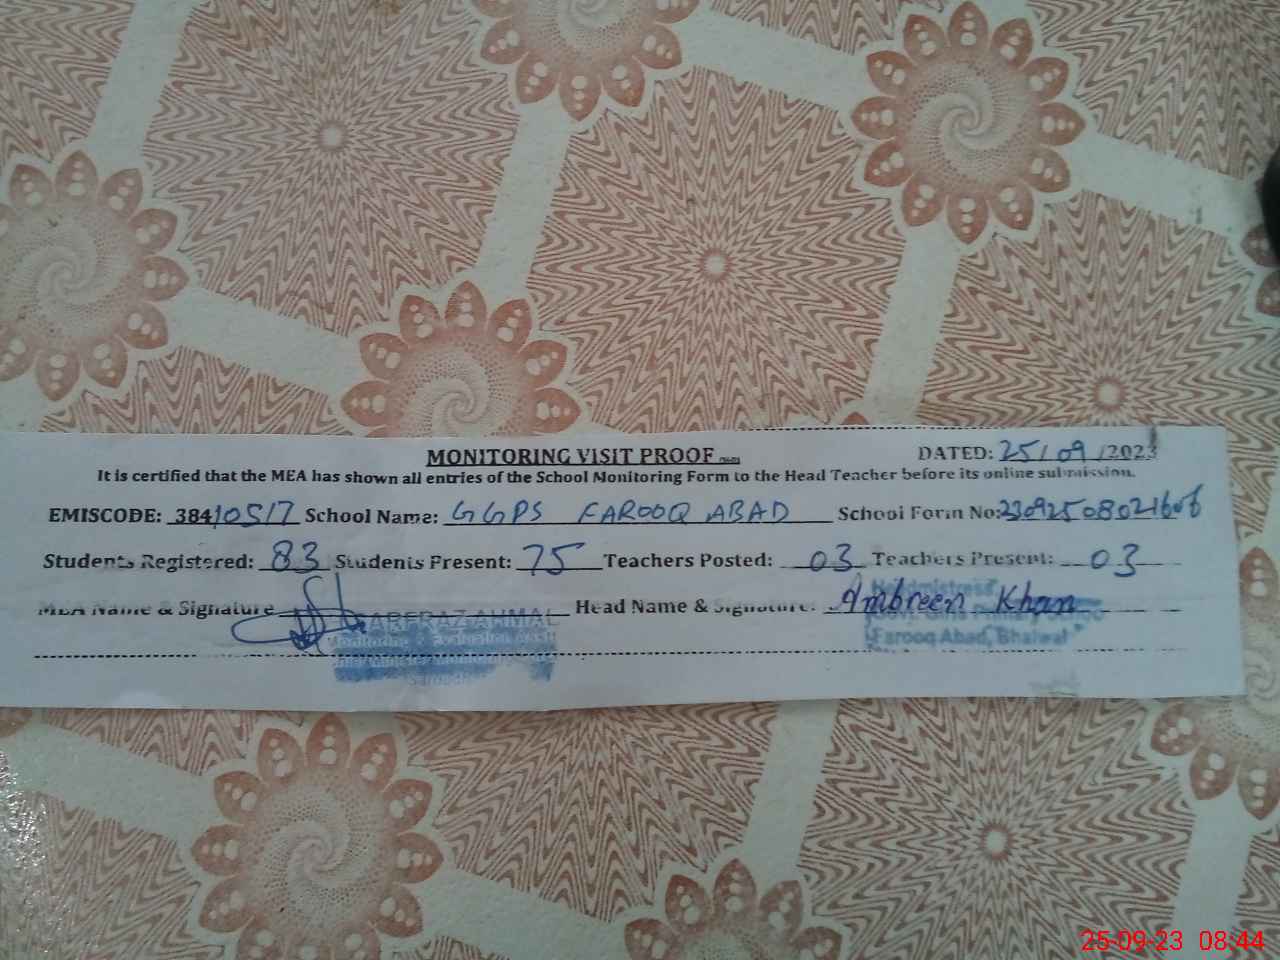 MONITORING VISIT PROOF DATED: 25/09/2023
It is certified that the MEA has shown all entries of the School Monitoring Form to the Head Teacher before its online submission.
EMISCODE: 38410517 School Name: GGPS FAROOQ ABAD School Form No: 23092508021606
Students Registered: 83 Students Present: 75 Teachers Posted: 03 Teachers Present: 03
MEA Name & Signature Head Name & Signature: Ambreen Khan
Headmistress
Govt. Girls Primary School
Farooq Abad, Bhalwal
Monitoring & Evaluation
Chief Minister Monitoring
25-09-23 08:44